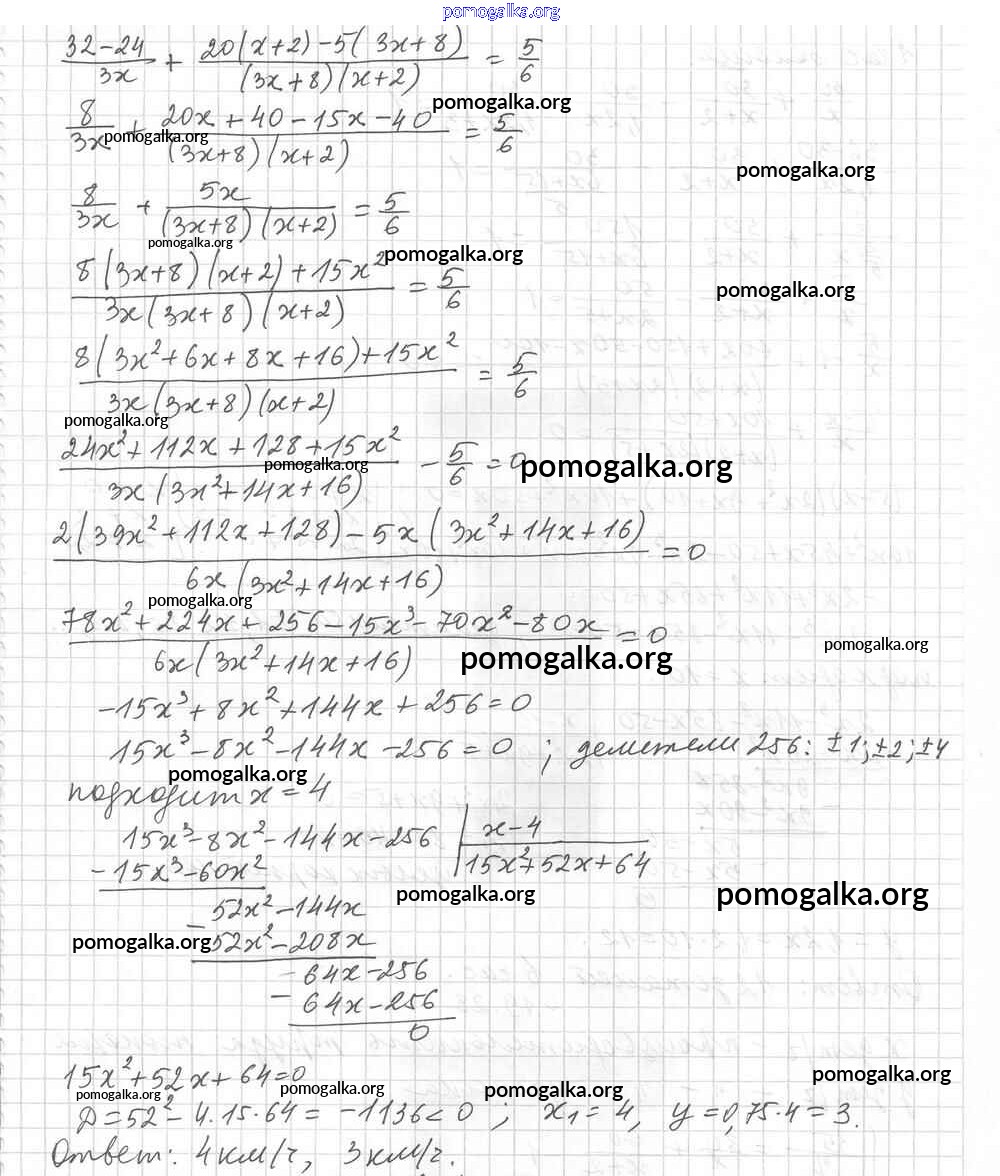 pomogalka.org
(32-24)/(3x) + (20(x+2)-5(3x+8))/((3x+8)(x+2)) = 5/6
pomogalka.org
8/(3x) + (20x+40-15x-40)/((3x+8)(x+2)) = 5/6
pomogalka.org
pomogalka.org
8/(3x) + 5x/((3x+8)(x+2)) = 5/6
pomogalka.org
pomogalka.org
(8(3x+8)(x+2)+15x²)/(3x(3x+8)(x+2)) = 5/6
pomogalka.org
(8(3x²+6x+8x+16)+15x²)/(3x(3x+8)(x+2)) = 5/6
pomogalka.org
(24x²+112x+128+15x²)/(3x(3x²+14x+16)) - 5/6 = 0
pomogalka.org
pomogalka.org
(2(39x²+112x+128)-5x(3x²+14x+16))/(6x(3x²+14x+16)) = 0
pomogalka.org
(78x²+224x+256-15x³-70x²-80x)/(6x(3x²+14x+16)) = 0
pomogalka.org
pomogalka.org
-15x³+8x²+144x+256=0
15x³-8x²-144x-256=0 ; делители 256: ±1;±2;±4
pomogalka.org
подходит x=4
15x³-8x²-144x-256 | x-4
-15x³-60x² | 15x²+52x+64
pomogalka.org
pomogalka.org
52x²-144x
pomogalka.org
-52x²-208x
-64x-256
-64x-256
0
pomogalka.org
15x²+52x+64=0
pomogalka.org
pomogalka.org
pomogalka.org
D=52²-4.15·64=-1136<0 ; x₁=4, y=0,75·4=3.
Ответ: 4км/ч, 3км/ч.